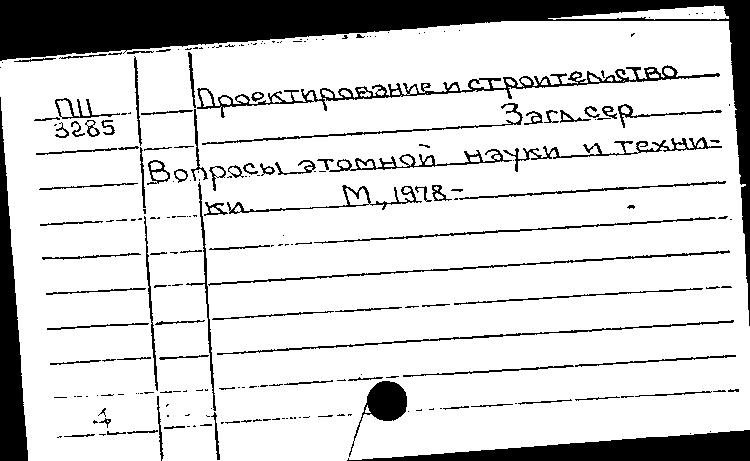 П11
3285
Проектирование и строительство
Загл. сер.
Вопросы атомной науки и техни-
ки. М., 1978-